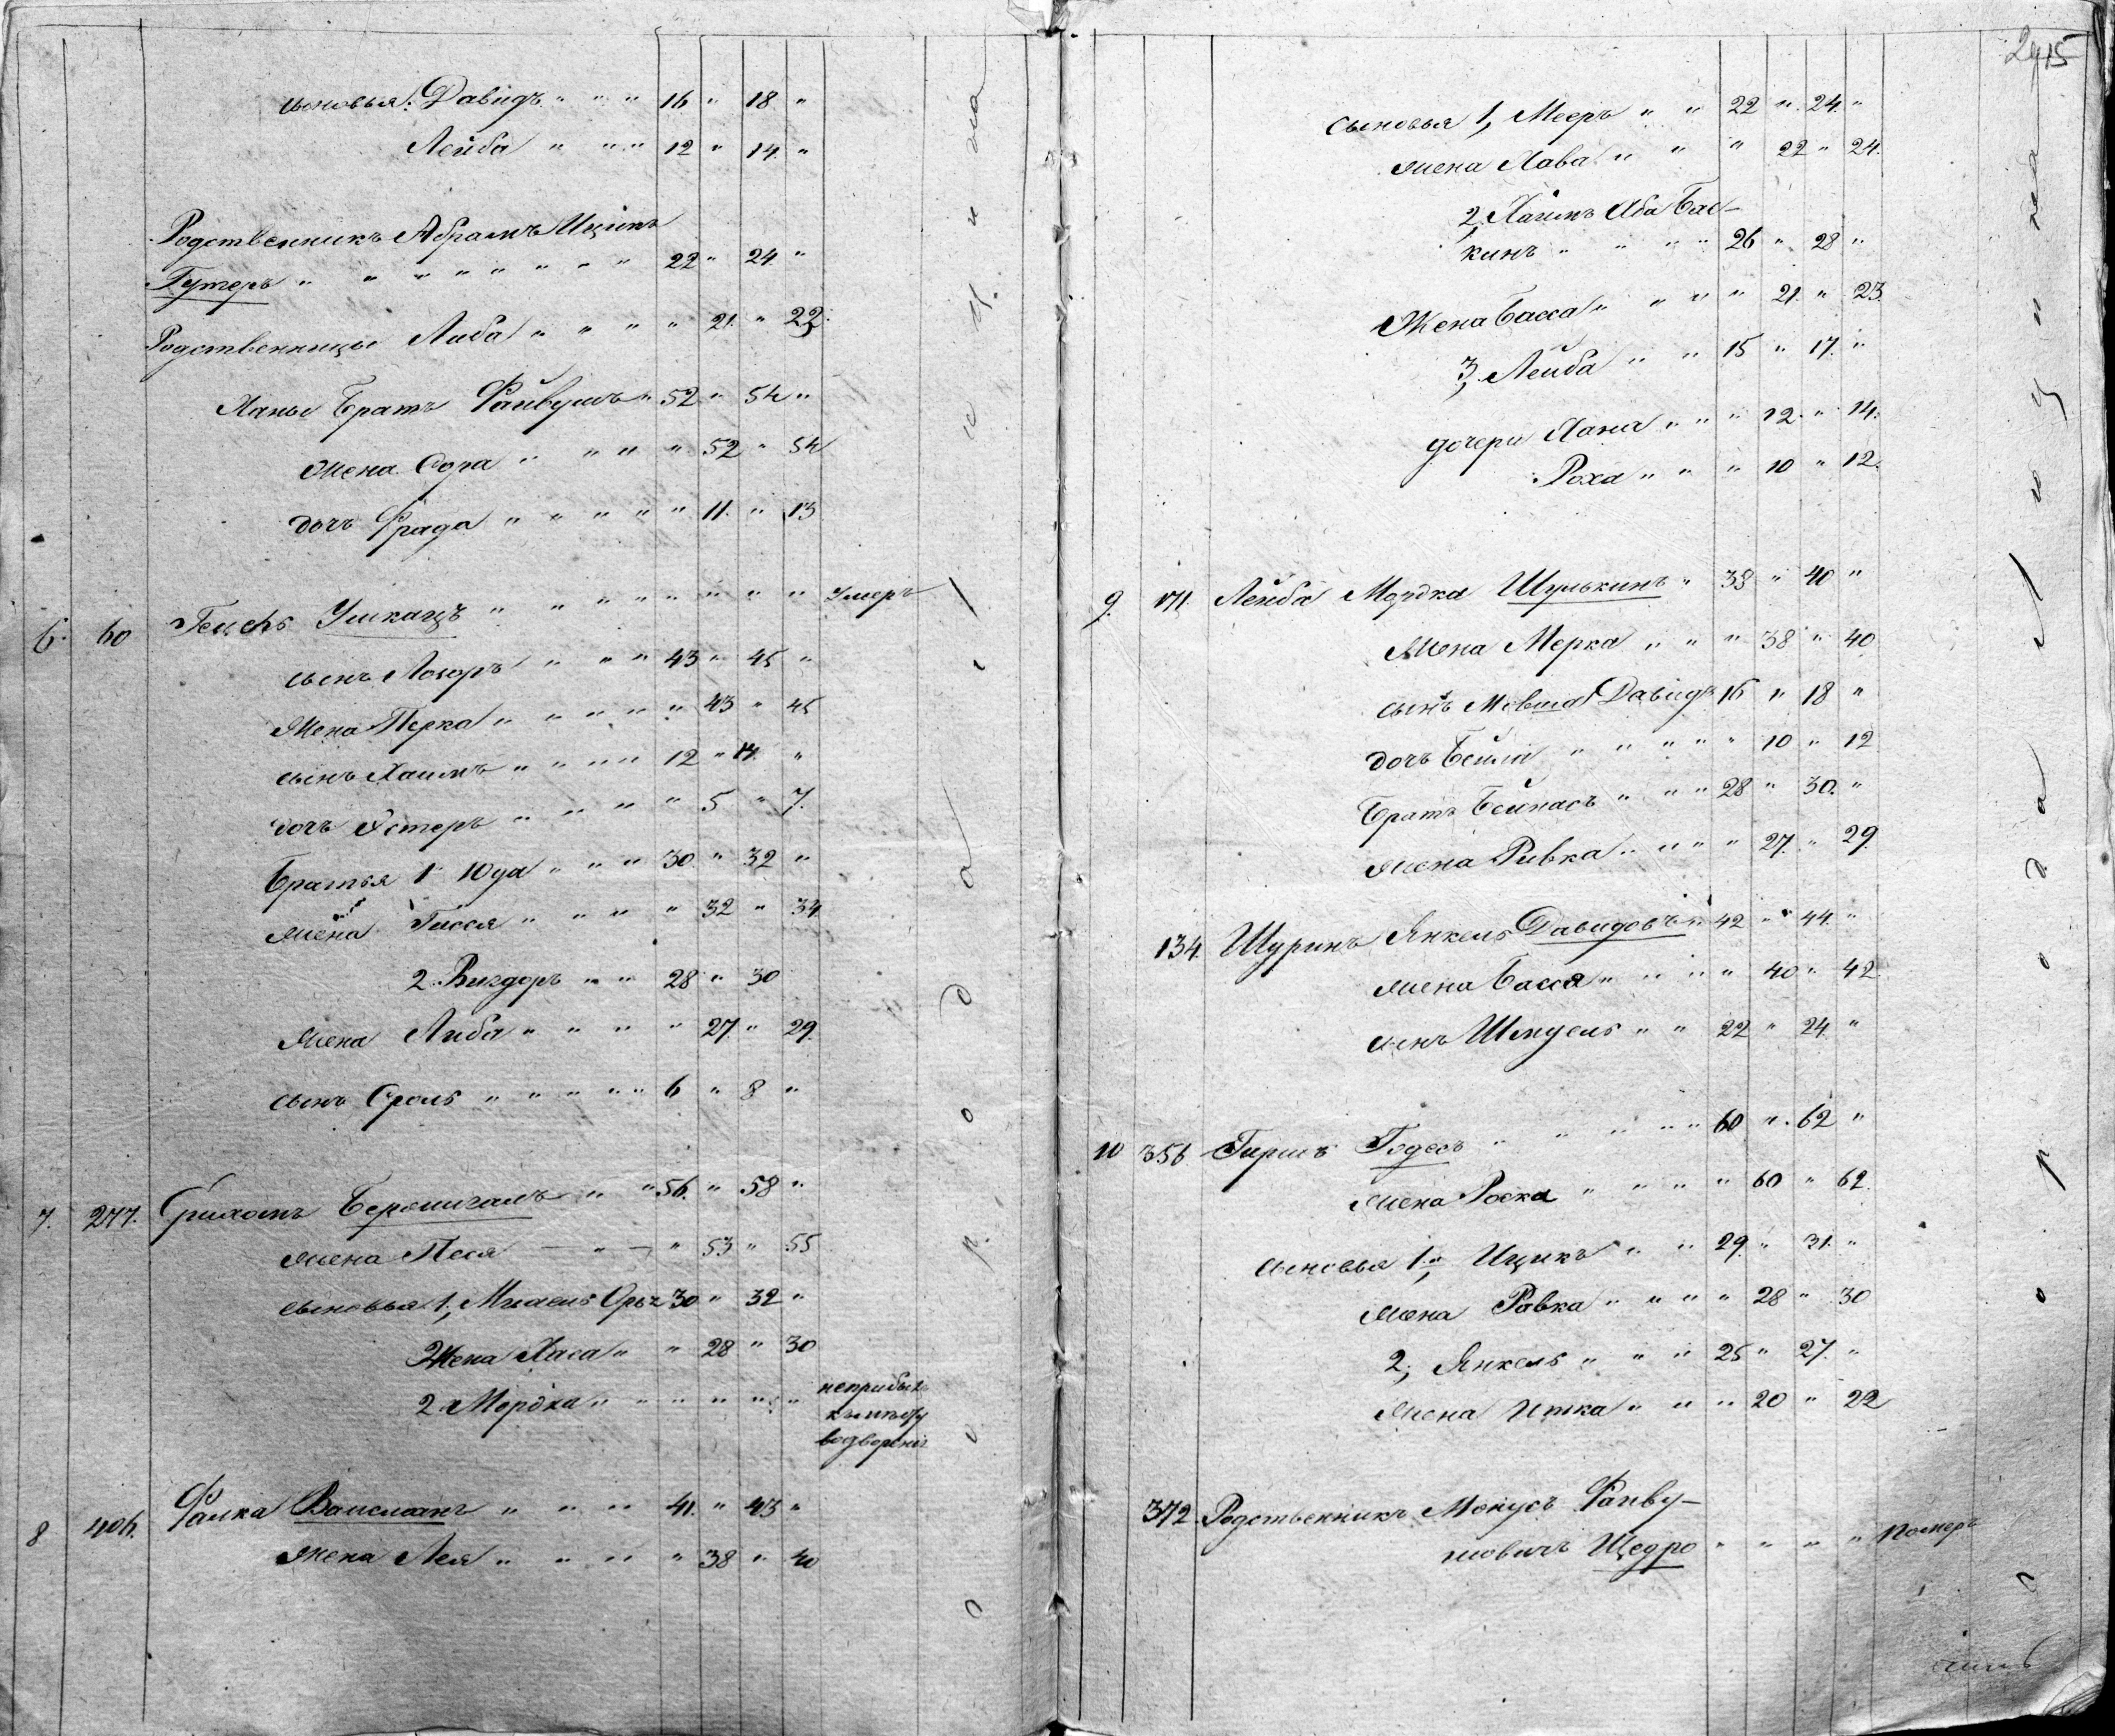 сыновья: Давидъ " " " 16 " 18 "
Лейба " " " 12 " 14 "
Родственникъ Абрамъ Ицикъ
Гутеръ " " " " " " " 22 " 24 "
Родственницы Либа " " " " 21. " 22.
Ханы Братъ Файвушъ " 52 " 54 "
Жена Сора " " " " 52 " 54
дочь Фрада " " " " " " 11. " 13
6. 60 Умкацъ " " " " " " " " Умеръ
сынъ Лозоръ " " " 43 " 45 "
Жена Перка " " " " " " 43 " 45
сынъ Хаимъ " " " " 12 " 14. "
дочь Эстеръ " " " " " 5 " 7.
Братья 1 Юда " " " 30. " 32 "
жена Гисся " " " " 32 " 34
2. Вигдоръ " " 28 " 30
жена Либа " " " " 27. " 29.
сынъ Сроль " " " " " 6 " 8 "
7. 277. " " 56. " 58 "
жена Песя — " — " 53 " 55
сыновья 1, 30 " 32 "
Жена Хаса " " 28 " 30
2. Мордка " " " " " " неприбылъ
къ мѣсту
водворенія
8 406. Фалка Вайсманъ " " " 41. " 43 "
Жена Лея " " " " 38 " 40
сыновья 1, Мееръ " " 22 " 24. "
жена Хава " " " 22 " 24.
2, Хаимъ Аба Бас-
кинъ " " " " 26 " 28 "
Жена Басса " " " " 21. " 23.
3, Лейба " " 15 " 17. "
дочери Хана " " " " 12. " 14.
Роха " " " 10 " 12.
9. 171. Лейба Мордка Шулькинъ " 38 " 40 "
Жена Мерка " " " 38 " 40
сынъ Мовша Давидъ 16 " 18 "
дочь Бейля " " " " " 10 " 12
Братъ Бейнасъ " " " 28 " 30. "
жена Ривка " " " " 27. " 29.
134. Шуринъ Янкель Давидовъ " 42 " 44. "
жена Басся " " " " 40 " 42.
сынъ Шмуель " " 22 " 24. "
10 356 Гиршъ Годесъ " " " " " 60 " 62 "
жена Роска " " " " " 60 " 62.
сыновья 1, Ицикъ " " 29 " 31. "
жена Ровка " " " " 28 " 30
2, Янкель " " " 25 " 27. "
жена Итка " " " 20 " 22
372. Родственникъ Монусъ Файву-
шовичъ Щедро " " " " Померъ